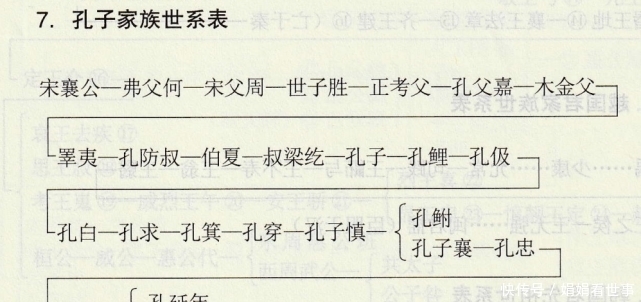 7. 孔子家族世系表
宋襄公—弗父何—宋父周—世子胜—正考父—孔父嘉—木金父
睪夷—孔防叔—伯夏—叔梁纥—孔子—孔鲤—孔伋
孔白—孔求—孔箕—孔穿—孔子慎
孔鲋
孔子襄—孔忠
孔延年
快传号/娟娟看世事